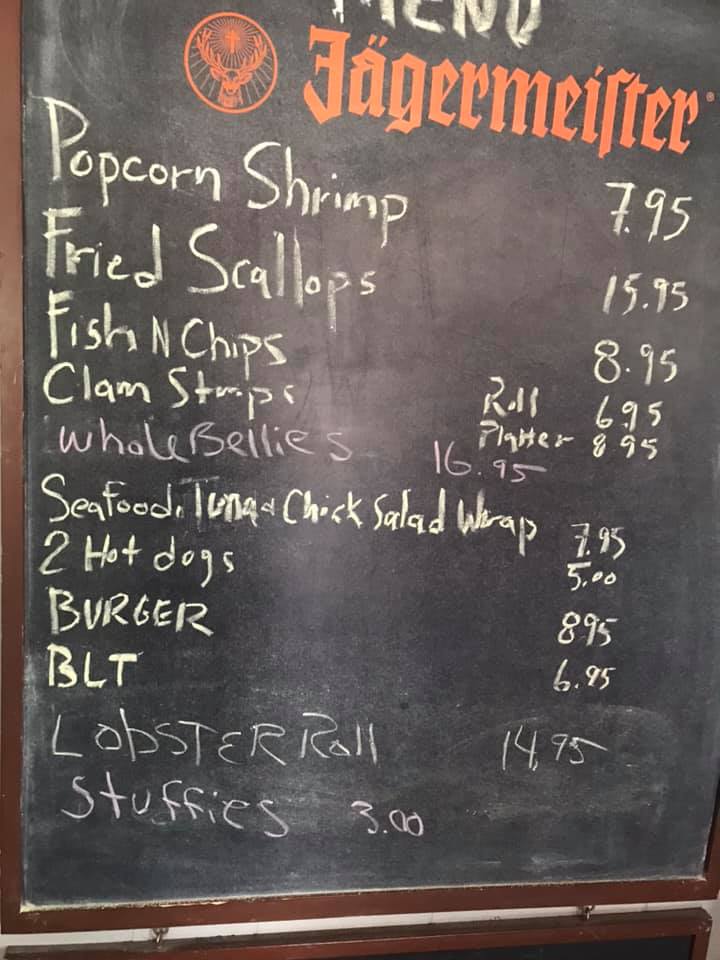 MENU
Jägermeister®
Popcorn Shrimp 7.95
Fried Scallops 15.95
Fish N Chips 8.95
Clam Strips Roll 6.95
Platter 8.95
Whole Bellies 16.95
Seafood, Tuna & Chick Salad Wrap 7.95
2 Hot dogs 5.00
BURGER 8.95
BLT 6.95
LObSTER Roll 14.95
Stuffies 3.00